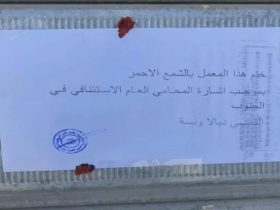 ختم هذا المعمل بالشمع الاحمر
بموجب اشارة المحامي العام الاستئنافي في
الجنوب
القاضي نيالا ونسة